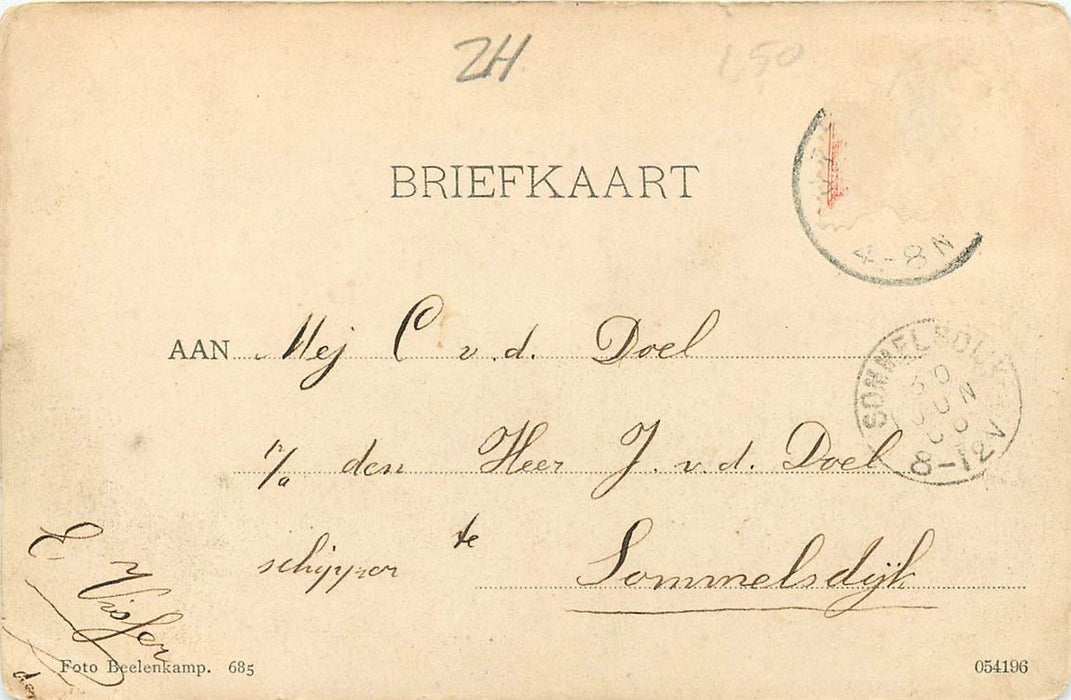 ZH
L50
BRIEFKAART
4-8N
AAN Mej C v. d. Doel
SOMMELSDIJK
30
JUN
8-12V
p/a den Heer J. v. d. Doel
schipper te Sommelsdijk
E Visser
Foto Beelenkamp. 685
054196